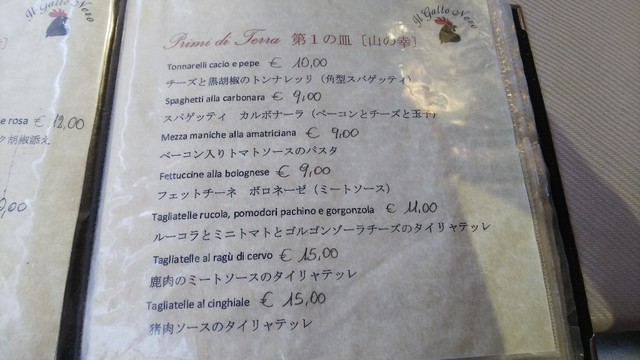 Il Gallo Nero
Il Gallo Nero
Primi di Terra 第1の皿［山の幸］
Tonnarelli cacio e pepe € 10,00
チーズと黒胡椒のトンナレッリ（角型スパゲッティ）
Spaghetti alla carbonara € 9,00
スパゲッティ カルボナーラ（ベーコンとチーズと玉子）
Mezza maniche alla amatriciana € 9,00
ベーコン入りトマトソースのパスタ
Fettuccine alla bolognese € 9,00
フェットチーネ ボロネーゼ（ミートソース）
Tagliatelle rucola, pomodori pachino e gorgonzola € 11,00
ルーコラとミニトマトとゴルゴンゾーラチーズのタイリャテッレ
Tagliatelle al ragù di cervo € 15,00
鹿肉のミートソースのタイリャテッレ
Tagliatelle al cinghiale € 15,00
猪肉ソースのタイリャテッレ
e rosa € 12,00
胡椒添え